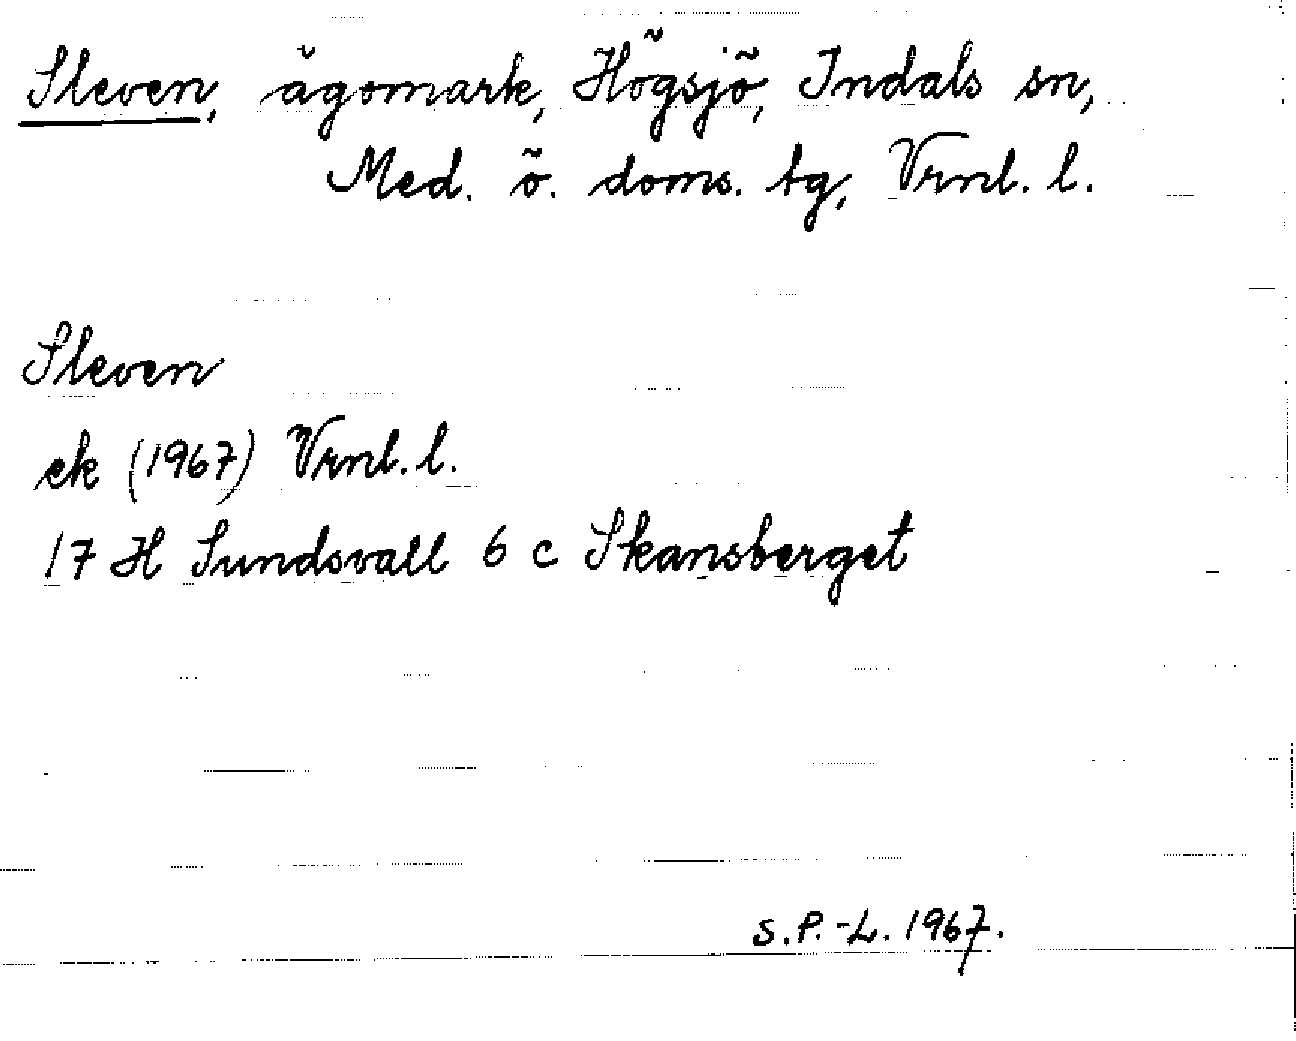 Sleven, ägomark, Högsjö, Indals sn,
Med. ö. doms. tg, Vrnl. l.
Sleven
ek (1967) Vrnl. l.
17 H Sundsvall 6 c Skansberget
S. P.-L. 1967.